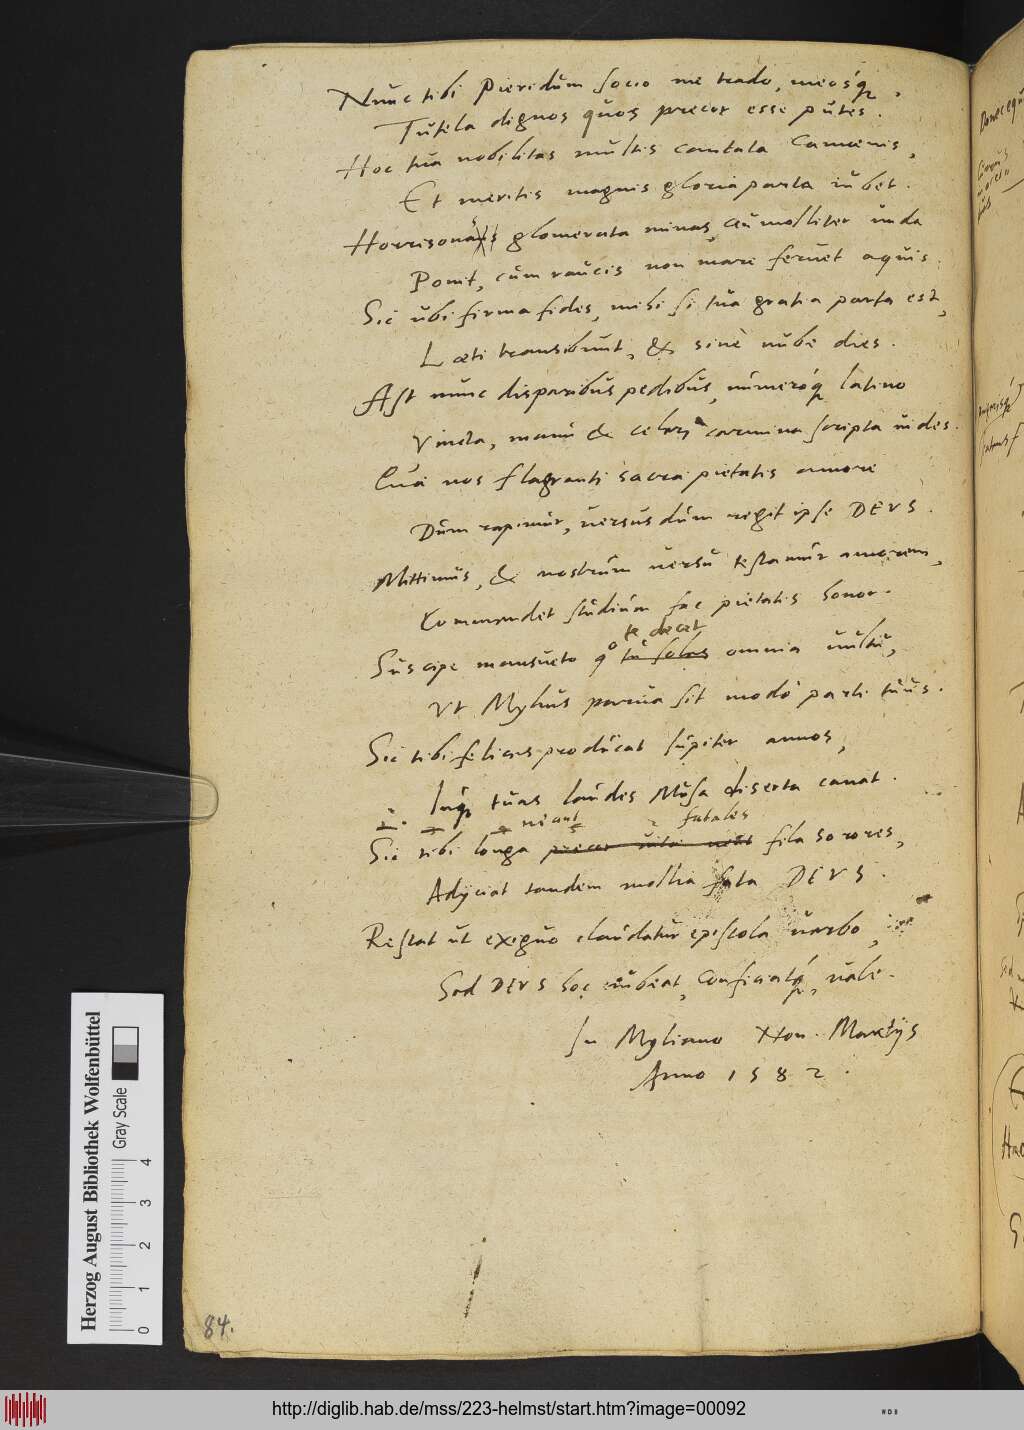 Nunc tibi Pieridum socio me trado, meosq́,
Tutela dignos quos precor esse putes.
Hoc tua nobilitas multis cantata Camœnis,
Et meritis magnis gloria parta iubet.
Horrisonas glomerata minas, ceu molliter unda
Ponit, cum raucis non mare feruet aquis.
Sic ubi firma fides, mihi si tua gratia parta est,
Læti transibunt, & sine nube dies.
Ast nunc disparibus pedibus, numeroq́ latino
Vincta, manu & celeri carmina scripta uides.
Quæ nos flagranti sacræ pietatis amore
Dum rapimur, uersus dum regit ipse DEVS.
Mittimus, & nostrum uersu testamur amorem,
Commendet studium fac pietatis honor.
te decet
Suscipe mansueto qo tu solus omnia uultu,
Vt Mylius parua sit modo parte tuus.
Sic tibi felices producat Iupiter annos,
Inq́ tuas laudes Musa diserta canat.
neant fatales
Sic tibi longa precor fila sorores,
Adijciat tandem mollia fata DEVS.
Restat ut exiguo claudatur epistola uerbo,
Sed DEVS hoc iubeat, conficiatq́, uale.
In Myliano Non. Martijs
Anno 1582.
84.
Herzog August Bibliothek Wolfenbüttel
Gray Scale
0 1 2 3 4
http://diglib.hab.de/mss/223-helmst/start.htm?image=00092